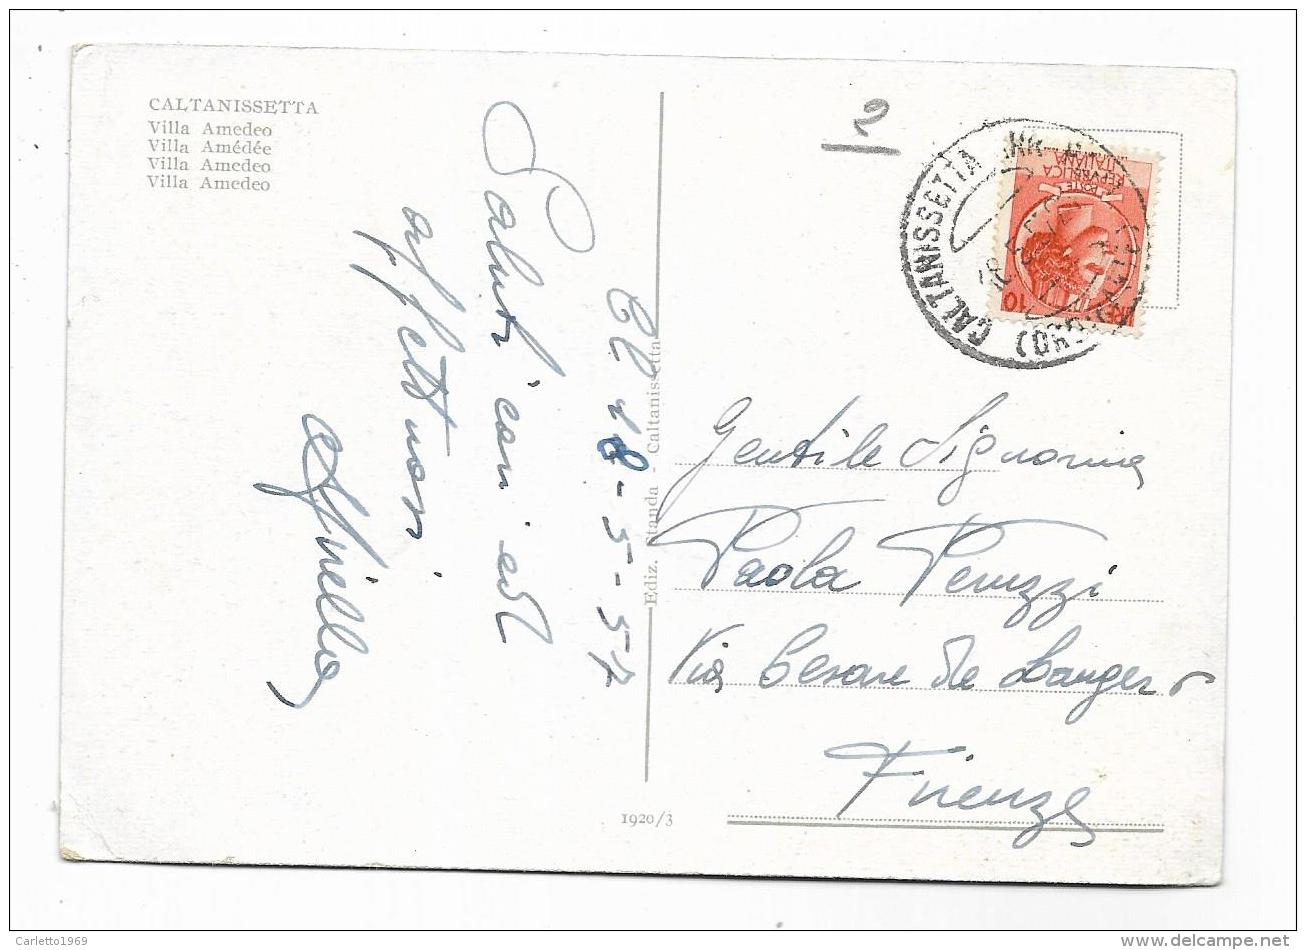 CALTANISSETTA
Villa Amedeo
Villa Amédée
Villa Amedeo
Villa Amedeo
2
CALTANISSETTA
REPVBBLICA
ITALIANA
POSTE
10
Cl 28-5-57
Saluti cari ed
affettuosi
Ediz. Standa - Caltanissetta
Gentile Signorina
Paola Peruzzi
Via Cesare De
Firenze
1920/3
Carletto1969
delcampe.net